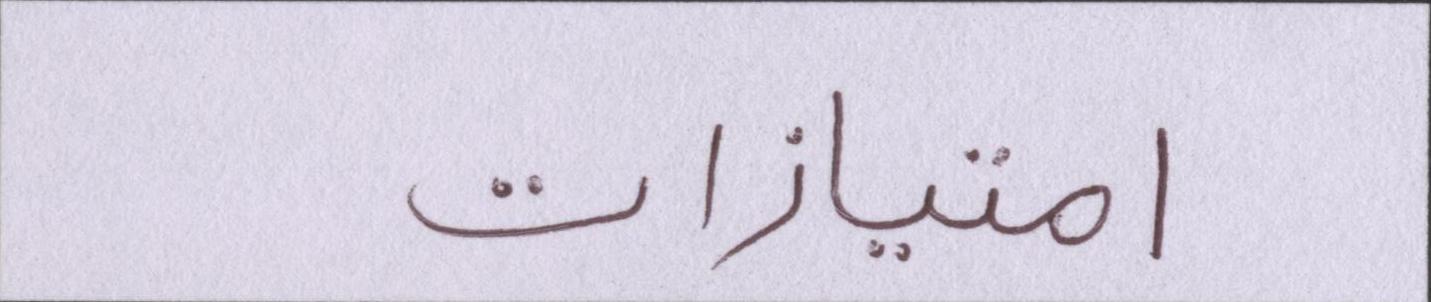 امتیازات